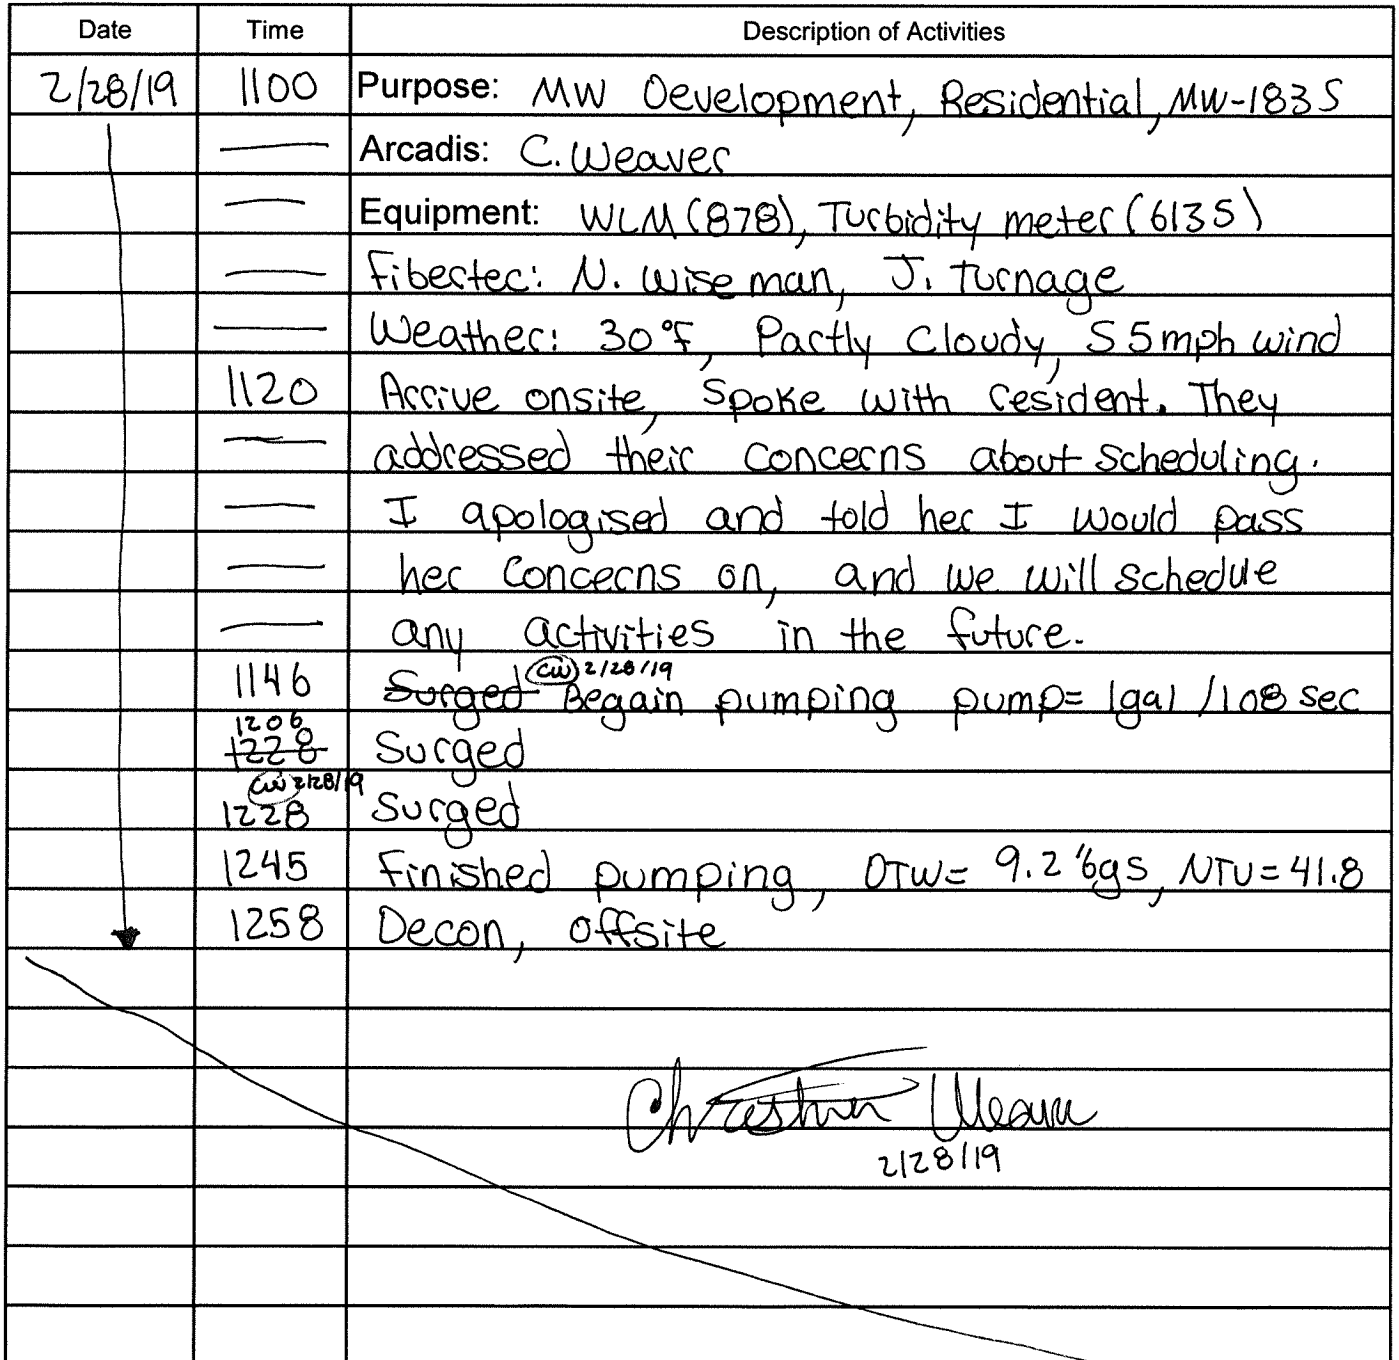 Date Time Description of Activities
2/28/19 1100 Purpose: MW Development, Residential, MW-183S
Arcadis: C. Weaver
Equipment: WLM (878), Turbidity meter (6135)
Fibertec: N. Wiseman, J. Turnage
Weather: 30°F, Partly Cloudy, S 5mph wind
1120 Arrive onsite, Spoke with resident. They
addressed their concerns about scheduling.
I apologised and told her I would pass
her concerns on, and we will schedue
any activities in the future.
CW 2/28/19
1146 Surged Begain pumping pump= 1gal /108 sec
1206
1228 Surged
CW 2/28/19
1228 Surged
1245 Finished pumping, DTW= 9.2 'bgs, NTU=41.8
1258 Decon, offsite
Weaver
2/28/19